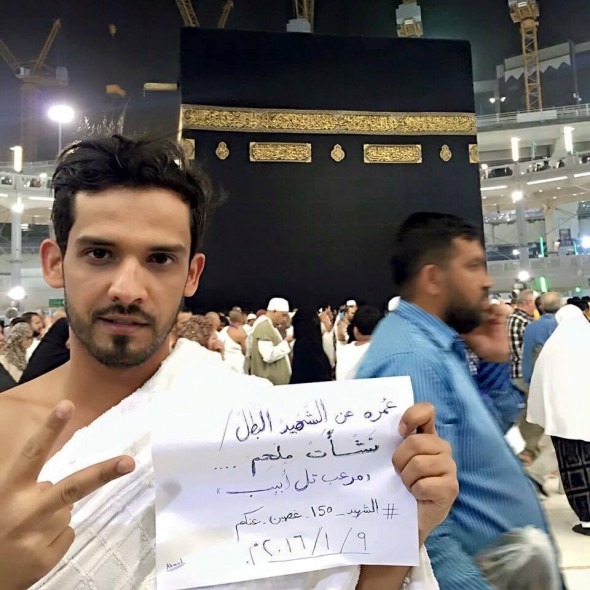 عُمره عن الشَّهيدُ البَطَلْ /
نَشَأتُ مِلحِم ....
« مرعب تل أبيب »
# الشهيد_150_غصبن_عنكم
٢٠١٦/١/٩ م.